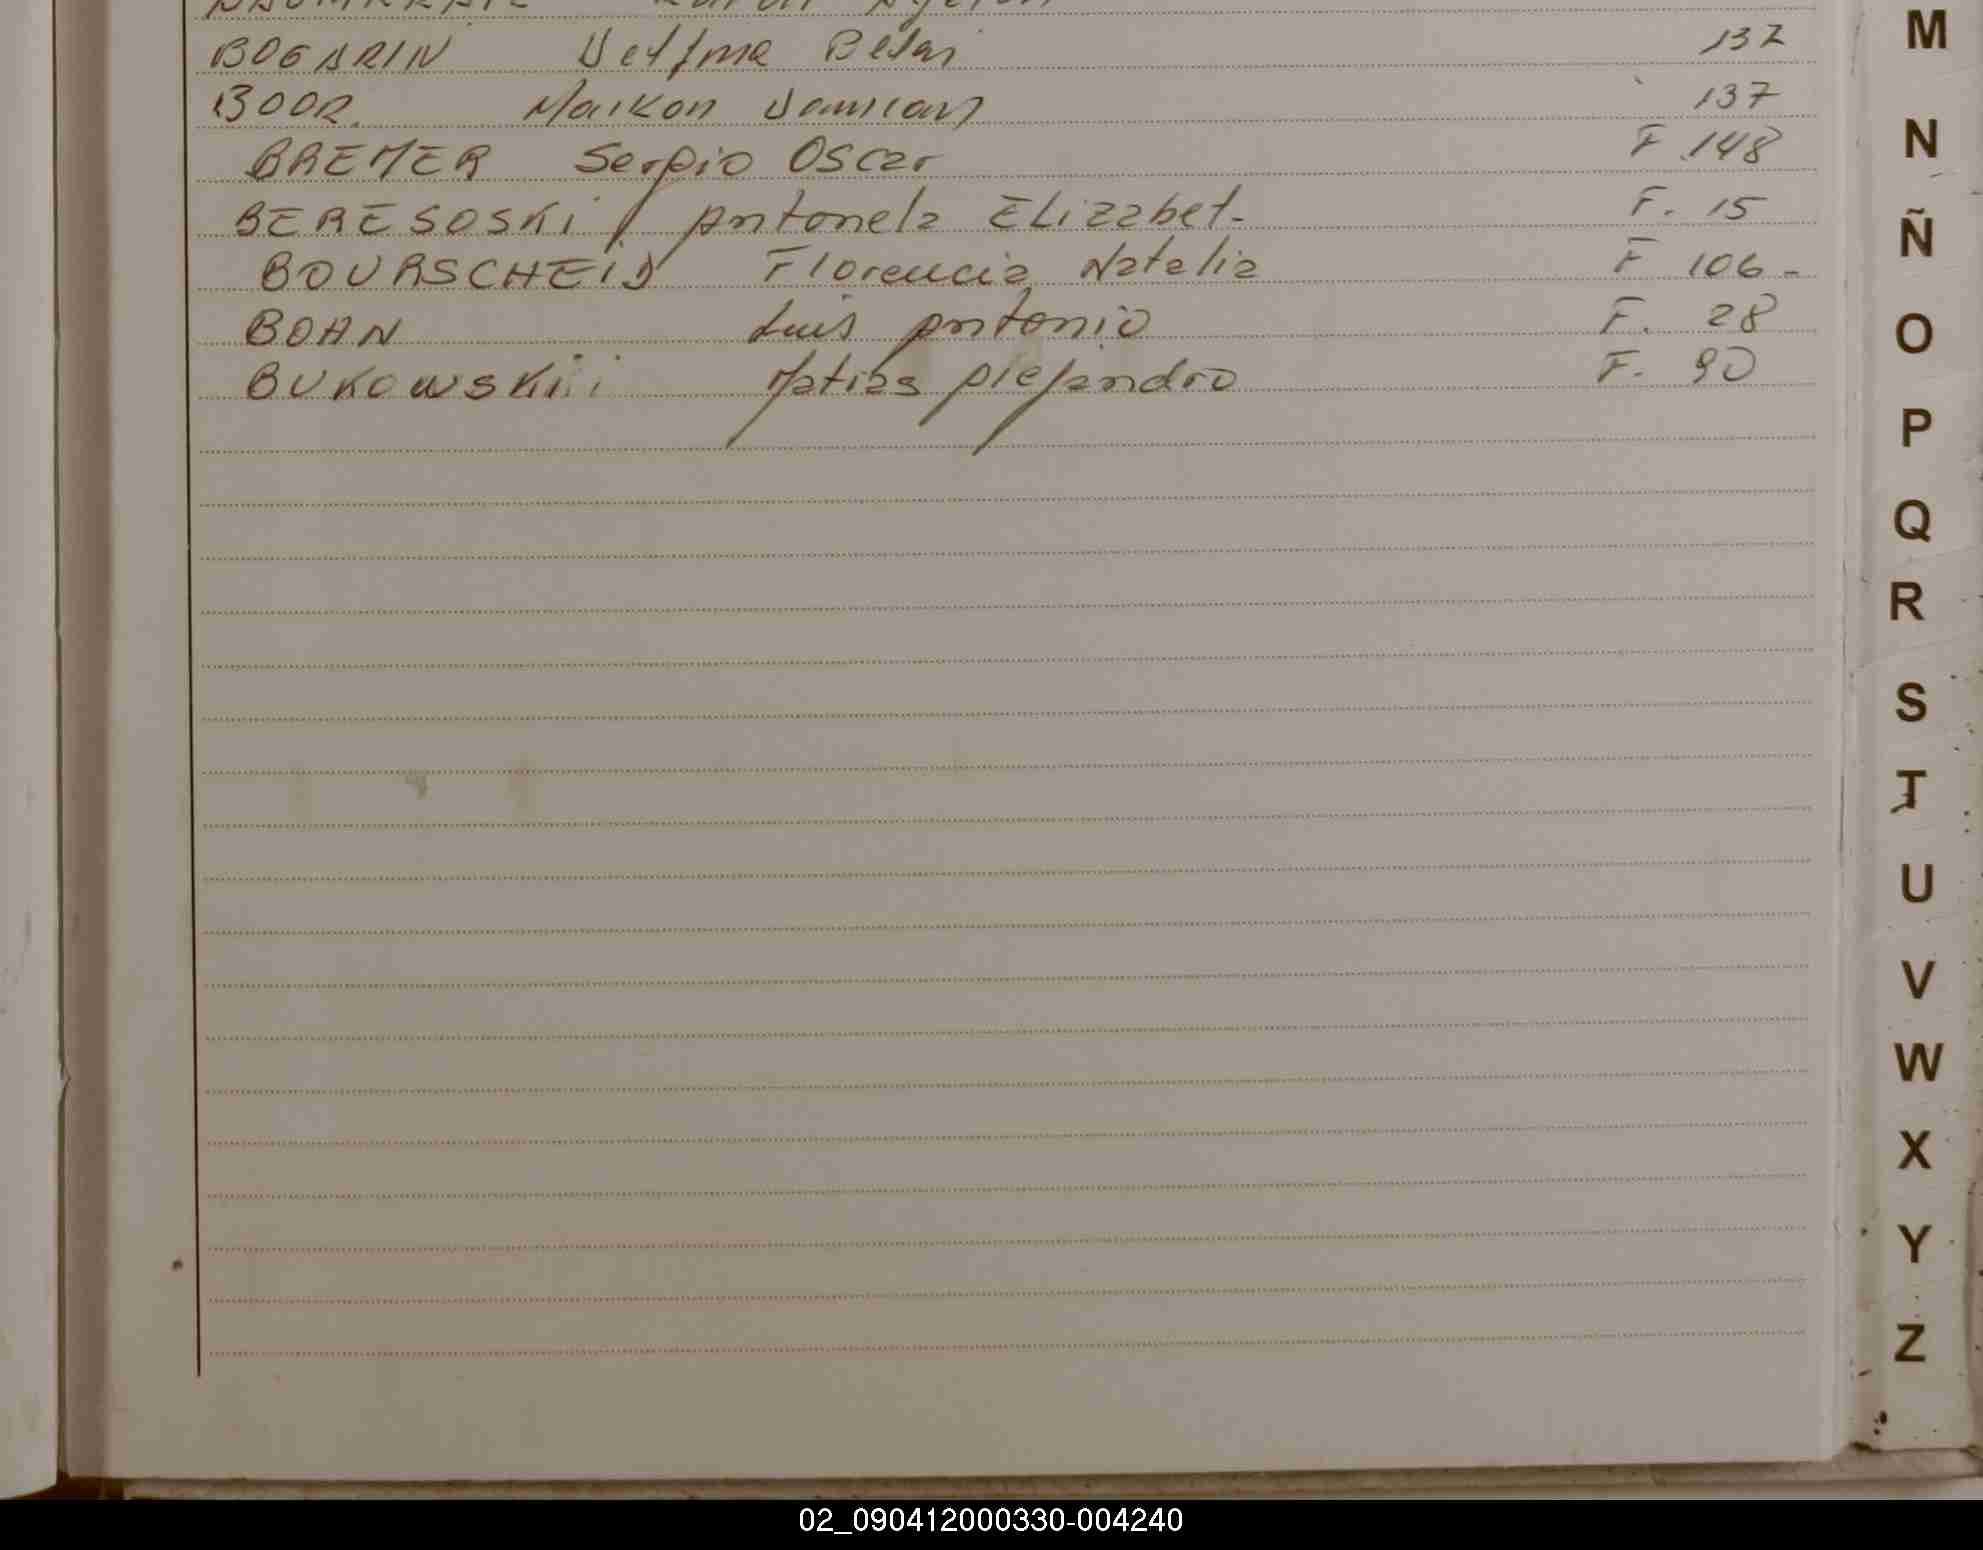 BOGARIN Delfina Belen 137
BOOR. Maikon Damian 137
BREMER Sergio Oscar F. 148
BERESOSKI / Antonela ELizabet- F. 15
BOURSCHEID Florencia Natalia F 106-
BOHN Luis Antonio F. 28
BUKOWSKI Matias Alejandro F. 90
M
N
Ñ
O
P
Q
R
S
T
U
V
W
X
Y
Z
02_090412000330-004240